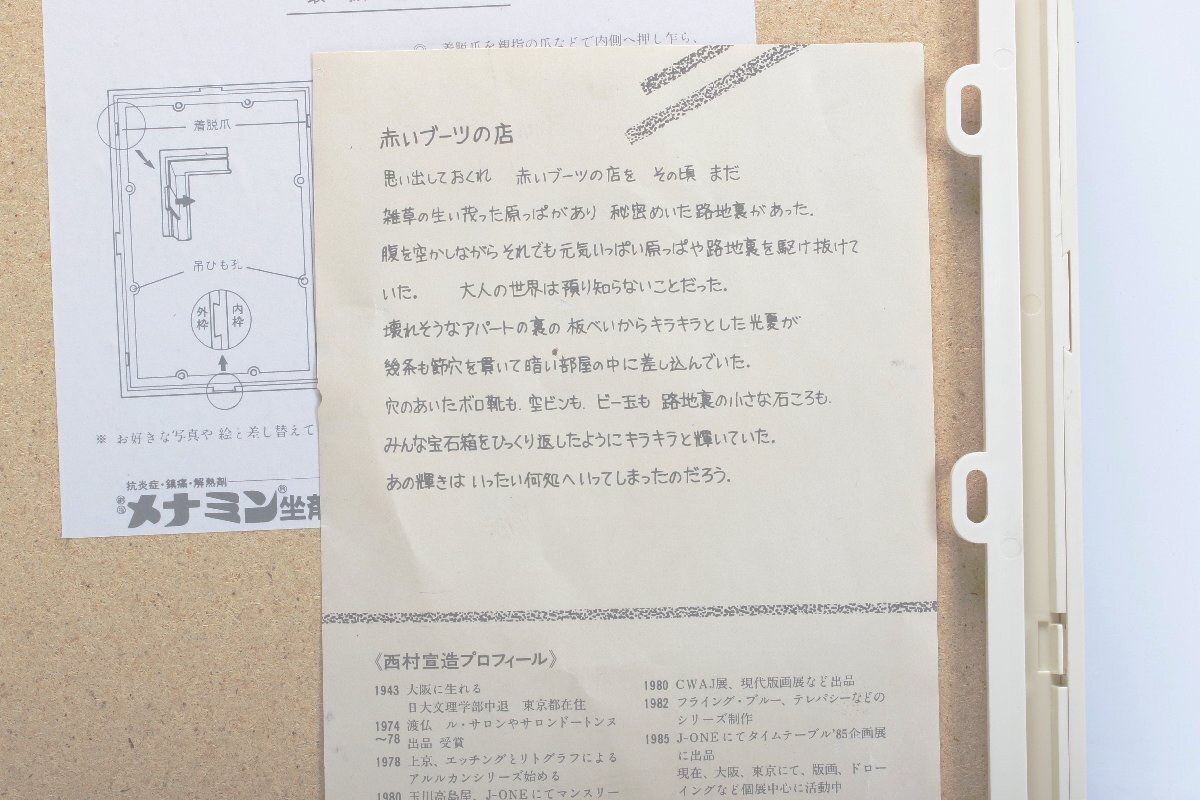 ◎ 着脱爪を親指の爪などで内側へ押し乍ら、
着脱爪
吊ひも孔
外枠
内枠
※ お好きな写真や絵と差し替えて
抗炎症・鎮痛・解熱剤
メナミン®坐剤
赤いブーツの店
思い出しておくれ 赤いブーツの店を その頃 まだ
雑草の生い茂った原っぱがあり 秘密めいた路地裏があった.
腹を空かしながらそれでも元気いっぱい原っぱや路地裏を駆け抜けて
いた. 大人の世界は預り知らないことだった.
壊れそうなアパートの裏の 板べいからキラキラとした光夏が
幾条も節穴を貫いて暗い部屋の中に差し込んでいた.
穴のあいたボロ靴も. 空ビンも. ビー玉も 路地裏の小さな石ころも.
みんな宝石箱をひっくり返したようにキラキラと輝いていた.
あの輝きは いったい何処へいってしまったのだろう.
《西村宣造プロフィール》
1943 大阪に生れる
日大文理学部中退 東京都在住
1974 渡仏 ル・サロンやサロンドートンヌ
〜78 出品 受賞
1978 上京、エッチングとリトグラフによる
アルルカンシリーズ始める
1980 玉川高島屋、J-ONEにてマンスリー
1980 CWAJ展、現代版画展など出品
1982 フライング・ブルー、テレパシーなどの
シリーズ制作
1985 J-ONEにてタイムテーブル'85企画展
に出品
現在、大阪、東京にて、版画、ドロー
イングなど個展中心に活動中